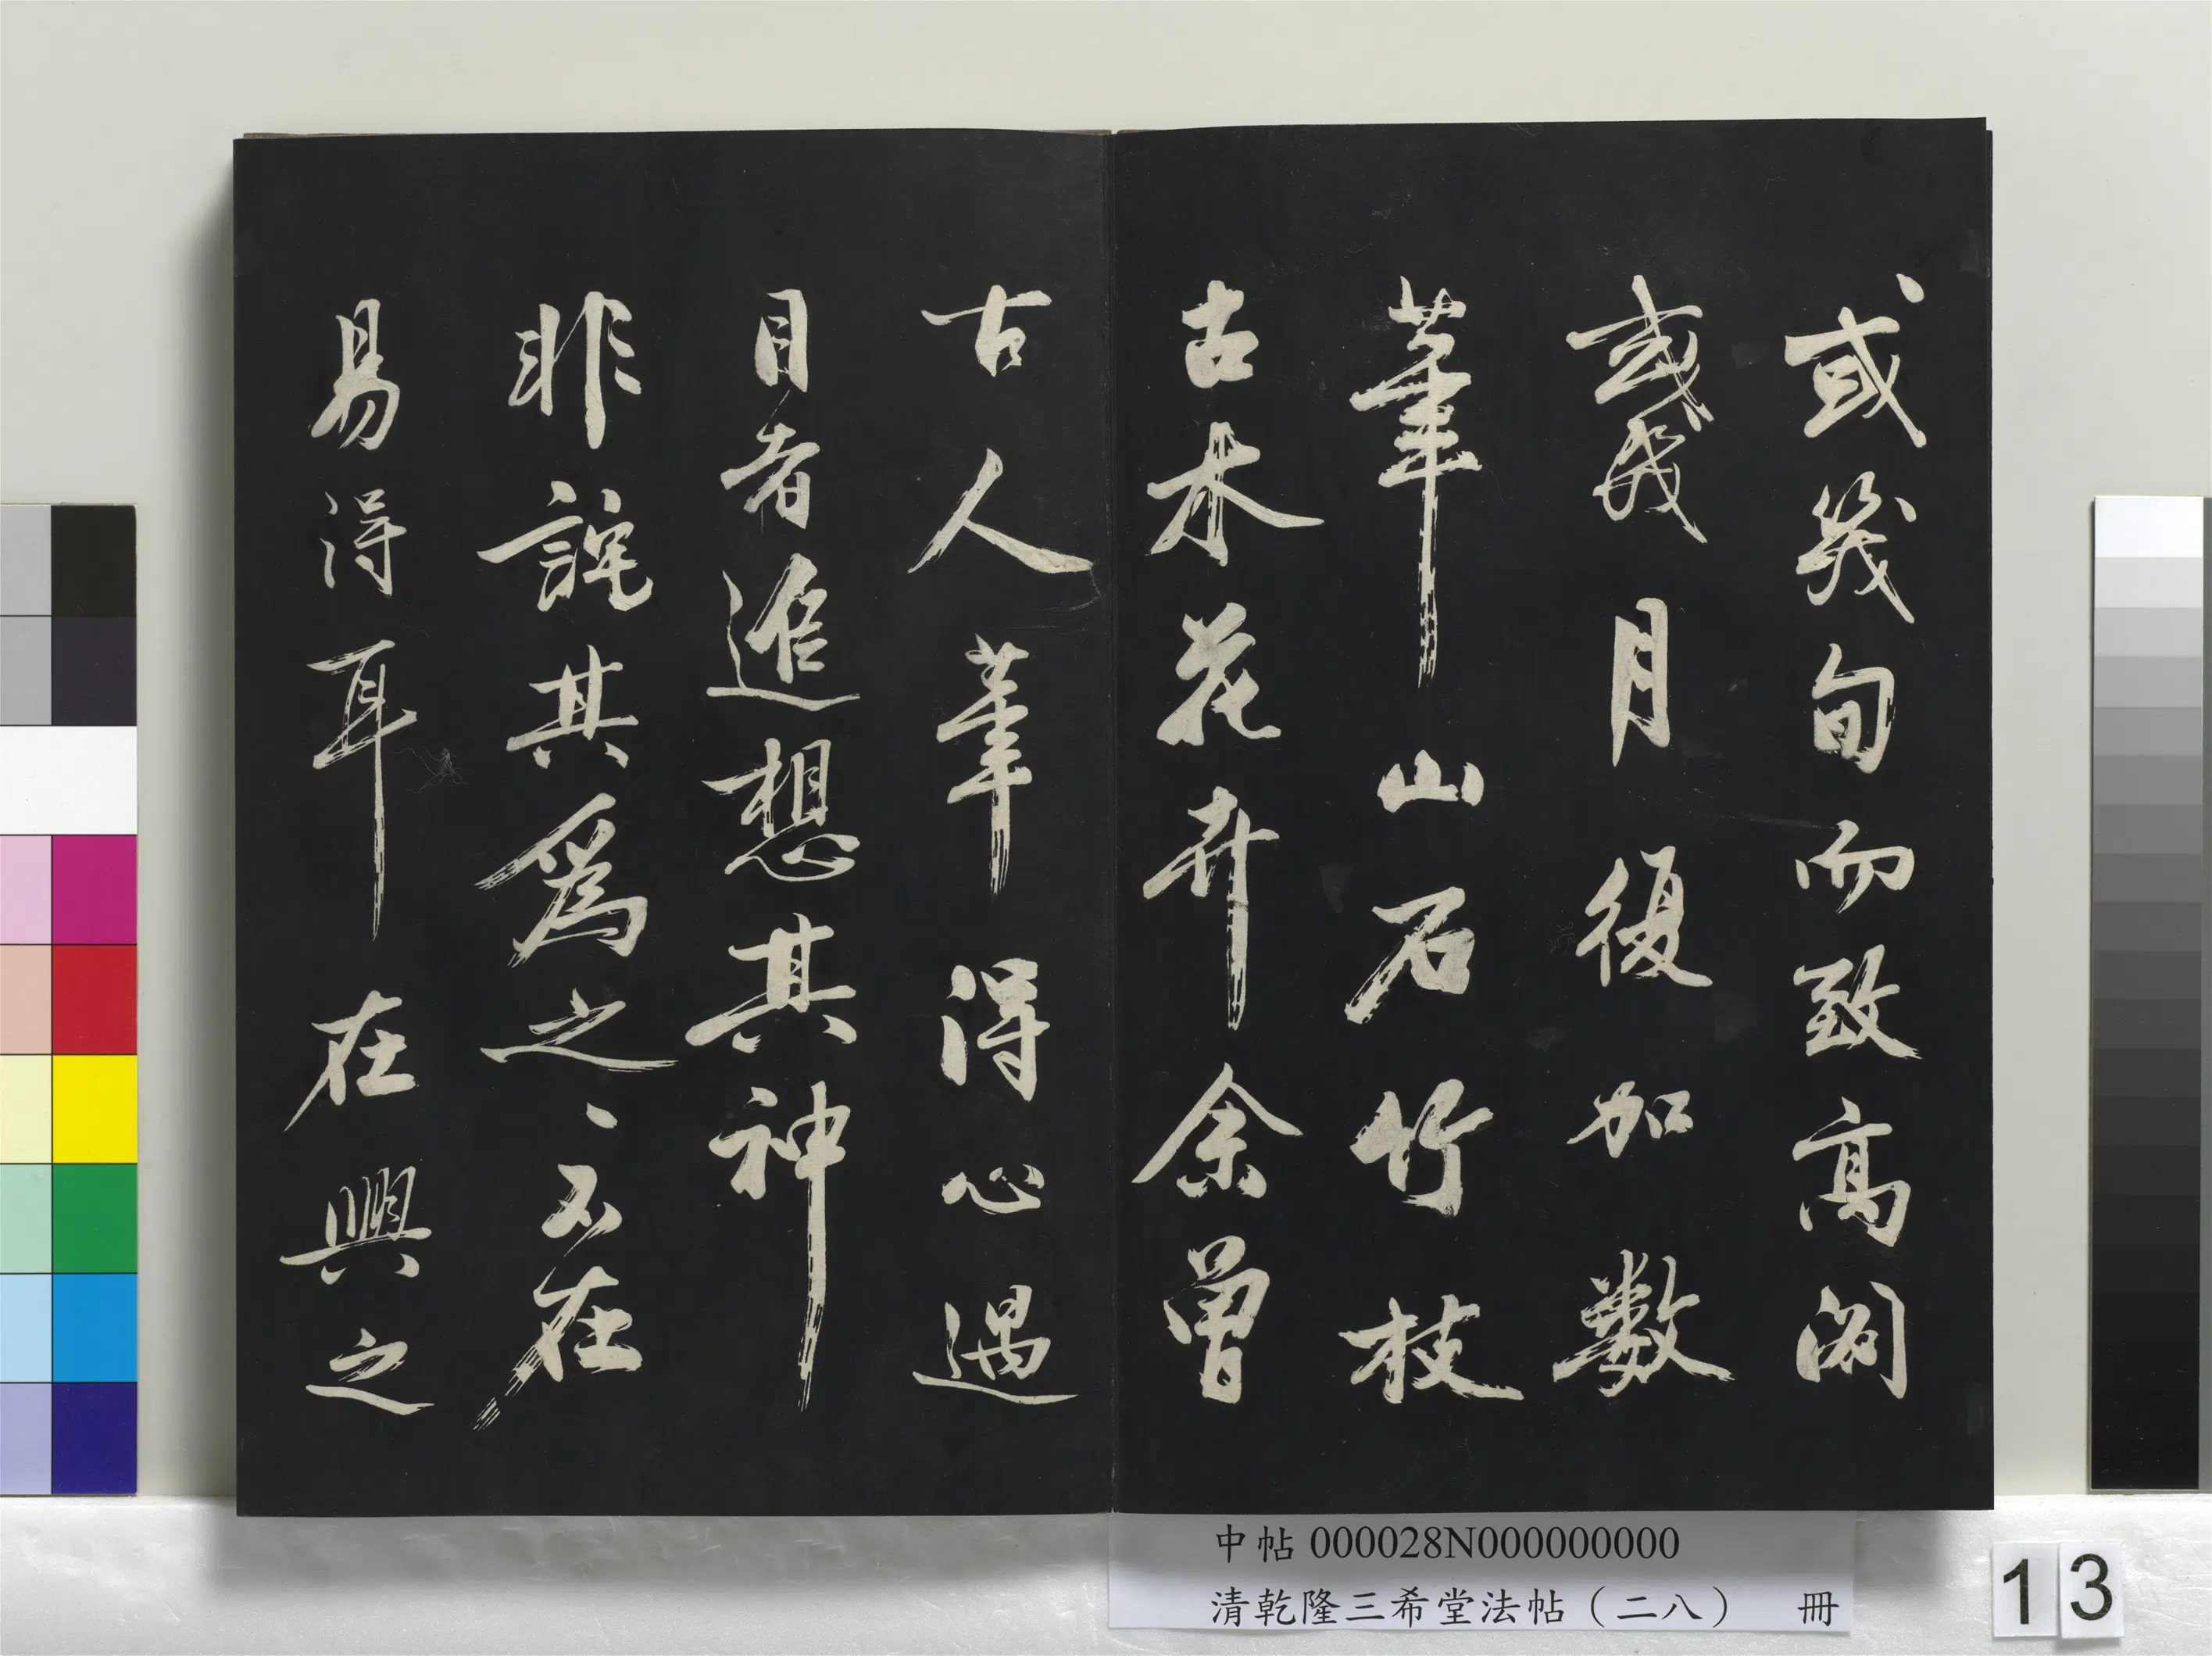 或幾旬而致高閣
或幾月復加數
筆山石竹枝
古木花卉余曾
古人筆得心遇
目者進想其神
非詫其爲之之不在
易得耳在興之
中帖000028N000000000
清乾隆三希堂法帖（二八） 冊
13